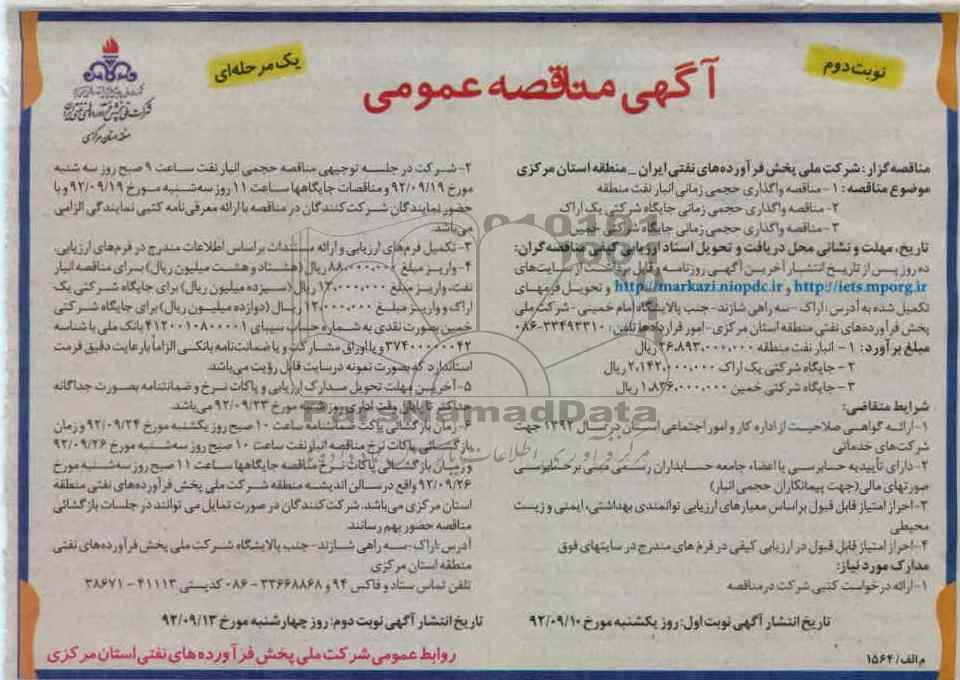 نوبت دوم
آگهی مناقصه عمومی
یک مرحله‌ای
شرکت ملی پخش فرآورده‌های نفتی ایران
منطقه استان مرکزی
مناقصه گزار: شرکت ملی پخش فرآورده‌های نفتی ایران _ منطقه استان مرکزی
موضوع مناقصه: ۱- مناقصه واگذاری حجمی زمانی انبار نفت منطقه
۲- مناقصه واگذاری حجمی زمانی جایگاه شرکتی یک اراک
۳- مناقصه واگذاری حجمی زمانی جایگاه شرکتی خمین
تاریخ، مهلت و نشانی محل دریافت و تحویل اسناد ارزیابی کیفی مناقصه گران:
ده روز پس از تاریخ انتشار آخرین آگهی روزنامه و قابل برداشت از سایت‌های
http://iets.mporg.ir و http://markazi.niopdc.ir و تحویل فرمهای
تکمیل شده به آدرس: اراک- سه راهی شازند- جنب پالایشگاه امام خمینی- شرکت ملی
پخش فرآورده‌های نفتی منطقه استان مرکزی- امور قراردادها تلفن: ۳۳۴۹۲۳۱۰-۰۸۶
مبلغ برآورد: ۱- انبار نفت منطقه ۲۶،۸۹۳،۰۰۰،۰۰۰ ریال
۲- جایگاه شرکتی یک اراک ۲،۱۴۲،۰۰۰،۰۰۰ ریال
۳- جایگاه شرکتی خمین ۱،۸۳۶،۰۰۰،۰۰۰ ریال
شرایط متقاضی:
۱- ارائه گواهی صلاحیت از اداره کار و امور اجتماعی استان در سال ۱۳۹۲ جهت
شرکت‌های خدماتی
۲- دارای تأییدیه حسابرسی یا اعضاء جامعه حسابداران رسمی مبنی بر حسابرسی
صورتهای مالی (جهت پیمانکاران حجمی انبار)
۳- احراز امتیاز قابل قبول بر اساس معیارهای ارزیابی توانمندی بهداشتی، ایمنی و زیست
محیطی
۴- احراز امتیاز قابل قبول در ارزیابی کیفی در فرم های مندرج در سایتهای فوق
مدارک مورد نیاز:
۱- ارائه درخواست کتبی شرکت در مناقصه
۲- شرکت در جلسه توجیهی مناقصه حجمی انبار نفت ساعت ۹ صبح روز سه شنبه
مورخ ۹۲/۰۹/۱۹ و مناقصات جایگاهها ساعت ۱۱ روز سه‌شنبه مورخ ۹۲/۰۹/۱۹ و با
حضور نمایندگان شرکت کنندگان در مناقصه با ارائه معرفی‌نامه کتبی نمایندگی الزامی
می‌باشد.
۳- تکمیل فرم‌های ارزیابی و ارائه مستندات بر اساس اطلاعات مندرج در فرم‌های ارزیابی.
۴- واریز مبلغ ۸۸،۰۰۰،۰۰۰ ریال (هشتاد و هشت میلیون ریال) برای مناقصه انبار
نفت، واریز مبلغ ۱۳،۰۰۰،۰۰۰ ریال (سیزده میلیون ریال) برای جایگاه شرکتی یک
اراک و واریز مبلغ ۱۲،۰۰۰،۰۰۰ ریال (دوازده میلیون ریال) برای جایگاه شرکتی
خمین بصورت نقدی به شماره حساب سیبای ۴۱۲۰۰۱۰۸۰۰۰۰۱ بانک ملی با شناسه
۳۷۴۰۰۰۰۰۰۴۲ و یا اوراق مشارکت و یا ضمانت‌نامه بانکی الزاماً با رعایت دقیق فرمت
استاندارد که بصورت نمونه در سایت قابل رؤیت می‌باشد.
۵- آخرین مهلت تحویل مدارک ارزیابی و پاکات نرخ و ضمانتنامه بصورت جداگانه
حداکثر تا پایان وقت اداری روز شنبه مورخ ۹۲/۰۹/۲۳ می‌باشد.
۶- زمان بازگشائی پاکت ضمانتنامه ساعت ۱۰ صبح روز یکشنبه مورخ ۹۲/۰۹/۲۴ و زمان
بازگشائی پاکات نرخ مناقصه انبار نفت ساعت ۱۰ صبح روز سه‌شنبه مورخ ۹۲/۰۹/۲۶
و زمان بازگشائی پاکات نرخ مناقصه جایگاهها ساعت ۱۱ صبح روز سه‌شنبه مورخ
۹۲/۰۹/۲۶ واقع در سالن اندیشه منطقه شرکت ملی پخش فرآورده‌های نفتی منطقه
استان مرکزی می‌باشد. شرکت کنندگان در صورت تمایل می توانند در جلسات بازگشائی
مناقصه حضور بهم رسانند.
آدرس: اراک- سه راهی شازند- جنب پالایشگاه شرکت ملی پخش فرآورده‌های نفتی
منطقه استان مرکزی
تلفن تماس ستاد و فاکس ۹۴ و ۳۳۶۶۸۸۶۸ - ۰۸۶ کدپستی ۴۱۱۱۳ - ۳۸۶۷۱
تاریخ انتشار آگهی نوبت اول: روز یکشنبه مورخ ۹۲/۰۹/۱۰
تاریخ انتشار آگهی نوبت دوم: روز چهارشنبه مورخ ۹۲/۰۹/۱۳
م الف/ ۱۵۶۴
روابط عمومی شرکت ملی پخش فرآورده های نفتی استان مرکزی
ParsNamadData